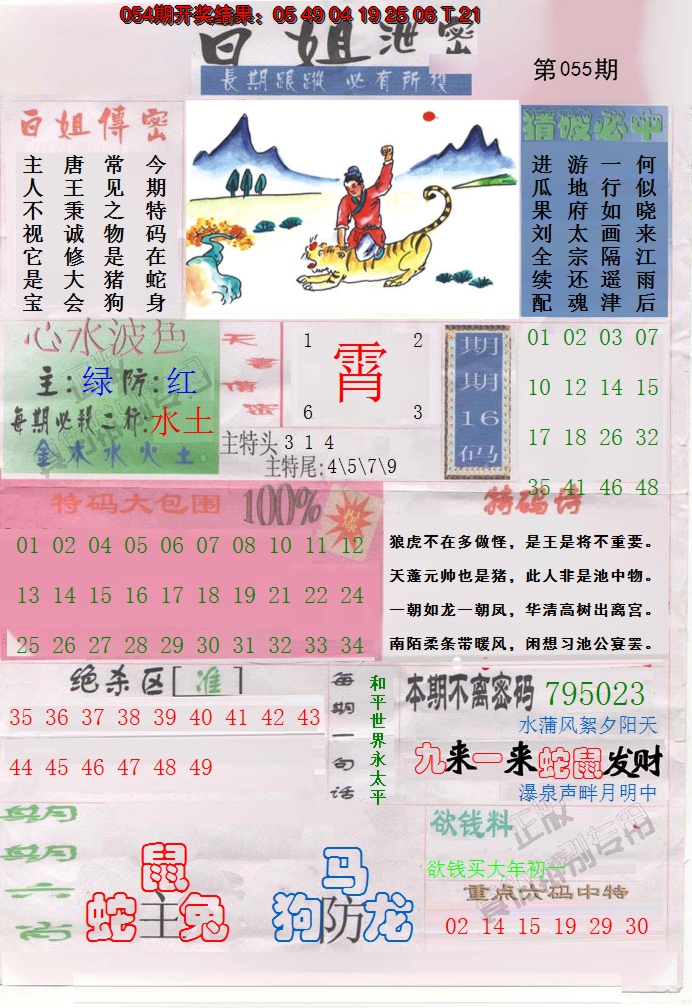 054期开奖结果：05 49 04 19 25 06 T 21
白姐泄密
第055期
長期跟蹤 必有所獲
白姐傳密
今期特码在蛇身
常见之物是猪狗
唐王秉诚修大会
主人不视它是宝
猜破必中
何似晓来江雨后
一行如画隔遥津
游地府太宗还魂
进瓜果刘全续配
心水波色
主:绿防:红
每期必殺二行:水土
金木水火土
天書信密
1 2
霄
6 3
主特头314
主特尾:4\5\7\9
期期16码
01 02 03 07
10 12 14 15
17 18 26 32
35 41 46 48
特码大包围 100% 准
01 02 04 05 06 07 08 10 11 12
13 14 15 16 17 18 19 21 22 24
25 26 27 28 29 30 31 32 33 34
特码诗
狼虎不在多做怪，是王是将不重要。
天蓬元帅也是猪，此人非是池中物。
一朝如龙一朝凤，华清高树出离宫。
南陌柔条带暖风，闲想习池公宴罢。
绝杀区[准]
35 36 37 38 39 40 41 42 43
44 45 46 47 48 49
每期一句话
和平世界永太平
本期不离密码 795023
水蒲风絮夕阳天
九来一来蛇鼠发财
瀑泉声畔月明中
每期
每期
六肖
鼠
蛇主兔
马
狗防龙
欲钱料
欲钱买大年初一
重点六码中特
02 14 15 19 29 30